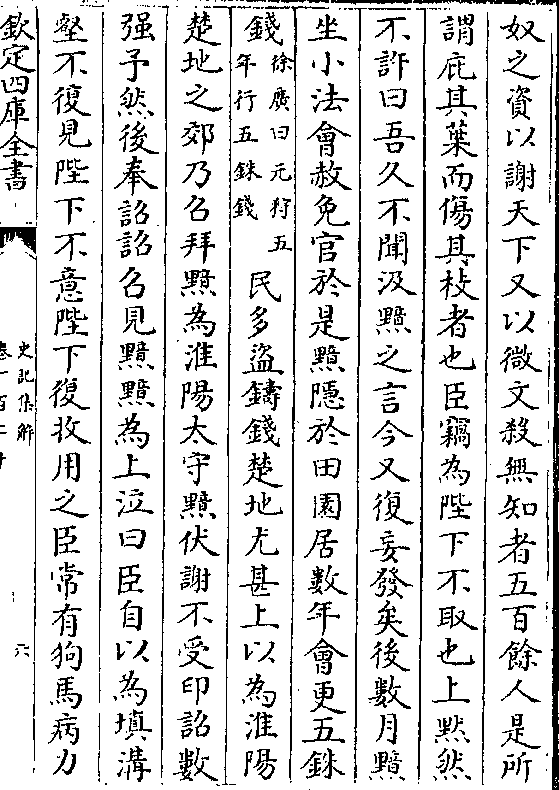 奴之資以謝天下又以微文殺無知者五百餘人是所
謂庇其葉而傷其枝者也臣竊為陛下不取也上黙然
不許曰吾久不聞汲黯之言今又復妄發矣後數月黯
坐小法會赦免官於是黯隱於田園居數年會更五銖
錢徐廣曰元狩五年行五銖錢民多盜鑄錢楚地尤甚上以為淮陽
楚地之郊乃召拜黯為淮陽太守黯伏謝不受印詔數
强予然後奉詔詔召見黯黯為上泣曰臣自以為填溝
壑不復見陛下不意陛下復收用之臣常有狗馬病力
欽定四庫全書
史記集解
卷一百二十
六